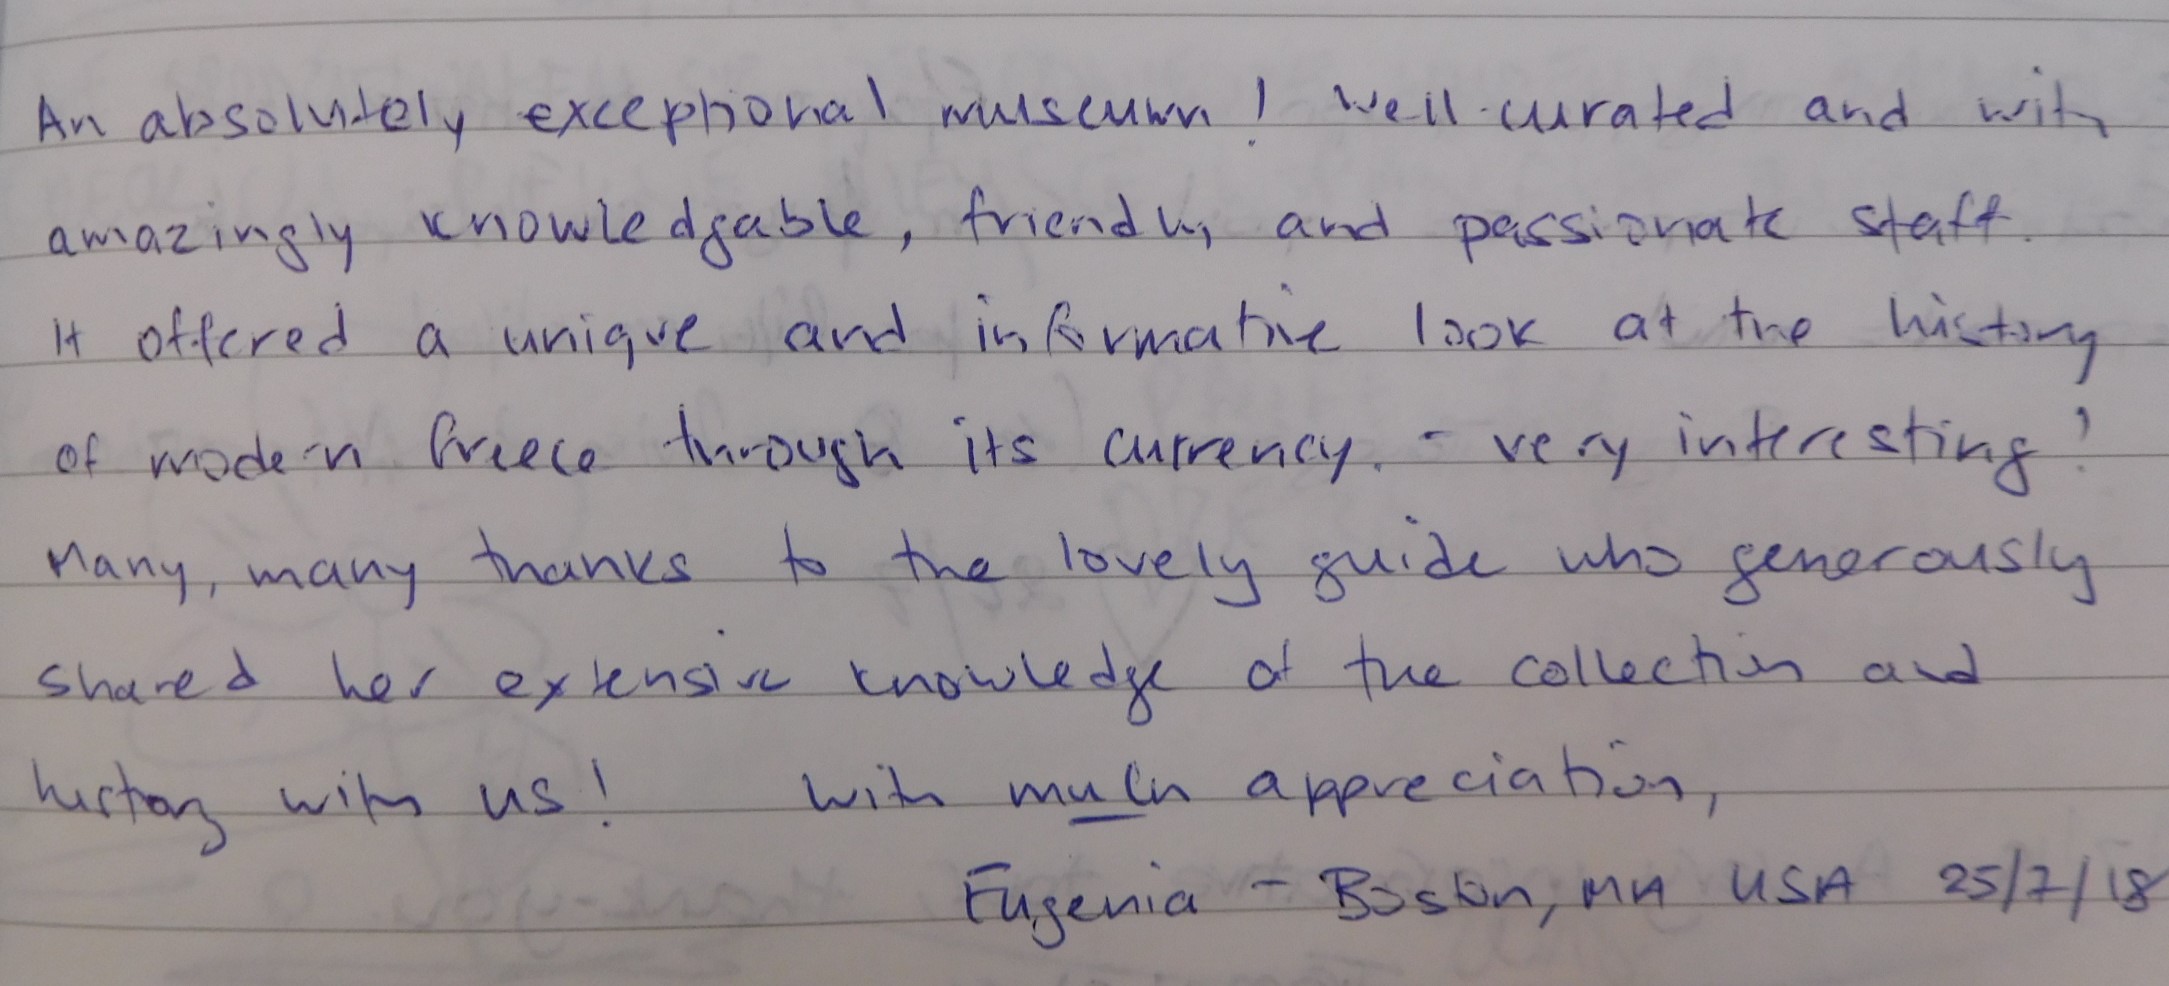 An absolutely exceptional museum! Well-curated and with
amazingly knowledgable, friendly, and passionate staff.
It offered a unique and informative look at the history
of modern Greece through its currency. - very interesting!
Many, many thanks to the lovely guide who generously
shared her extensive knowledge of the collection and
history with us! With much appreciation,
Eugenia - Boston, MA USA 25/7/18